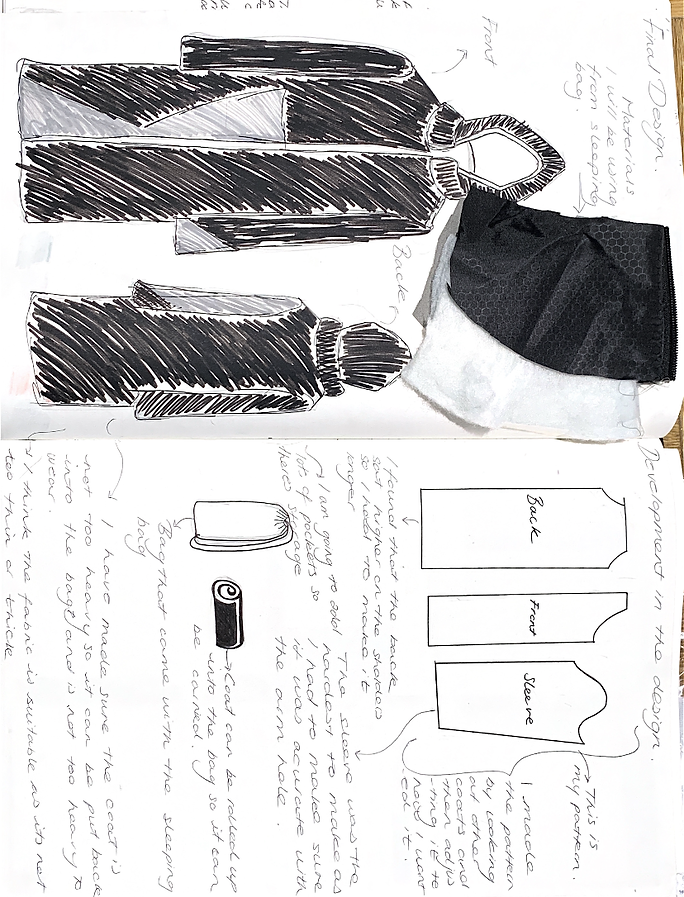 'Final Design.
Materials
I will be using
from sleeping
bag.
Front
Back
Development in the design.
Back
Front
Sleeve
This is
my pattern.
I made
the pattern
by looking
at other
coats and
then adjus
ting it to
how I want
ed it.
I found that the back
sat higher on the
so I had to make it
longer
The sleeve was the
hardest to make as
I had to make sure
it was accurate with
the arm hole.
I am going to add
lots of pockets so
theres storage
Coat can be rolled up
into the bag so it can
be carried.
Bag that came with the sleeping
bag
I have made sure the coat is
not too heavy so it can be put back
into the bag and is not too heavy to
wear.
I think the fabric is suitable as its not
too thin or thick